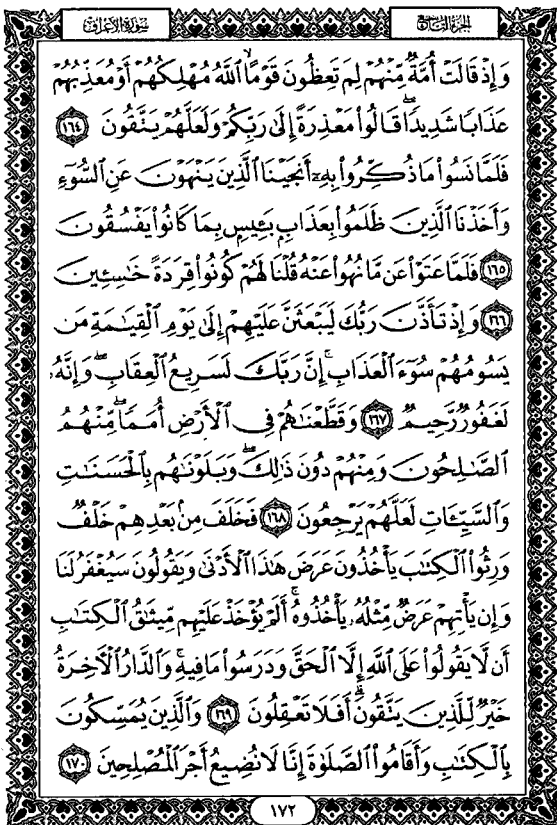 سُورَةُ الأَعْرَافِ
الجُزءُ التَّاسِعُ
وَإِذْ قَالَتْ أُمَّةٌ مِّنْهُمْ لِمَ تَعِظُونَ قَوْمًا ۙ اللَّهُ مُهْلِكُهُمْ أَوْ مُعَذِّبُهُمْ
عَذَابًا شَدِيدًا ۖ قَالُوا۟ مَعْذِرَةً إِلَىٰ رَبِّكُمْ وَلَعَلَّهُمْ يَتَّقُونَ ١٦٤
فَلَمَّا نَسُوا۟ مَا ذُكِّرُوا۟ بِهِۦٓ أَنجَيْنَا ٱلَّذِينَ يَنْهَوْنَ عَنِ ٱلسُّوٓءِ
وَأَخَذْنَا ٱلَّذِينَ ظَلَمُوا۟ بِعَذَابٍۭ بَـِٔيسٍۭ بِمَا كَانُوا۟ يَفْسُقُونَ
١٦٥ فَلَمَّا عَتَوْا۟ عَن مَّا نُهُوا۟ عَنْهُ قُلْنَا لَهُمْ كُونُوا۟ قِرَدَةً خَـٰسِـِٔينَ
١٦٦ وَإِذْ تَأَذَّنَ رَبُّكَ لَيَبْعَثَنَّ عَلَيْهِمْ إِلَىٰ يَوْمِ ٱلْقِيَـٰمَةِ مَن
يَسُومُهُمْ سُوٓءَ ٱلْعَذَابِ ۗ إِنَّ رَبَّكَ لَسَرِيعُ ٱلْعِقَابِ ۖ وَإِنَّهُۥ
لَغَفُورٌ رَّحِيمٌ ١٦٧ وَقَطَّعْنَـٰهُمْ فِى ٱلْأَرْضِ أُمَمًا ۖ مِّنْهُمُ
ٱلصَّـٰلِحُونَ وَمِنْهُمْ دُونَ ذَٰلِكَ ۖ وَبَلَوْنَـٰهُم بِٱلْحَسَنَـٰتِ
وَٱلسَّيِّـَٔاتِ لَعَلَّهُمْ يَرْجِعُونَ ١٦٨ فَخَلَفَ مِنۢ بَعْدِهِمْ خَلْفٌ
وَرِثُوا۟ ٱلْكِتَـٰبَ يَأْخُذُونَ عَرَضَ هَـٰذَا ٱلْأَدْنَىٰ وَيَقُولُونَ سَيُغْفَرُ لَنَا
وَإِن يَأْتِهِمْ عَرَضٌ مِّثْلُهُۥ يَأْخُذُوهُ ۚ أَلَمْ يُؤْخَذْ عَلَيْهِم مِّيثَـٰقُ ٱلْكِتَـٰبِ
أَن لَّا يَقُولُوا۟ عَلَى ٱللَّهِ إِلَّا ٱلْحَقَّ وَدَرَسُوا۟ مَا فِيهِ ۗ وَٱلدَّارُ ٱلْـَٔاخِرَةُ
خَيْرٌ لِّلَّذِينَ يَتَّقُونَ ۗ أَفَلَا تَعْقِلُونَ ١٦٩ وَٱلَّذِينَ يُمَسِّكُونَ
بِٱلْكِتَـٰبِ وَأَقَامُوا۟ ٱلصَّلَوٰةَ إِنَّا لَا نُضِيعُ أَجْرَ ٱلْمُصْلِحِينَ ١٧٠
١٧٢